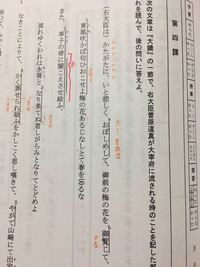 第四課
次の文章は「大鏡」の一節で、右大臣菅原道真が大宰府に流される時のことを記した
れを読んで、後の問いに答えよ。
（右大臣は）かたがたに、いと悲しくおぼしめして、御前の梅の花を御覧じて、
東風吹かば匂ひおこせよ梅の花あるじなしとて春を忘るな
また、亭子の帝に聞こえさせ給ふ、
流れゆくわれは水屑となり果てぬ君しがらみとなりてとどめよ
なきことにより、かく罪せられ給ふをかしこく思し嘆きて、やがて山崎にて出家